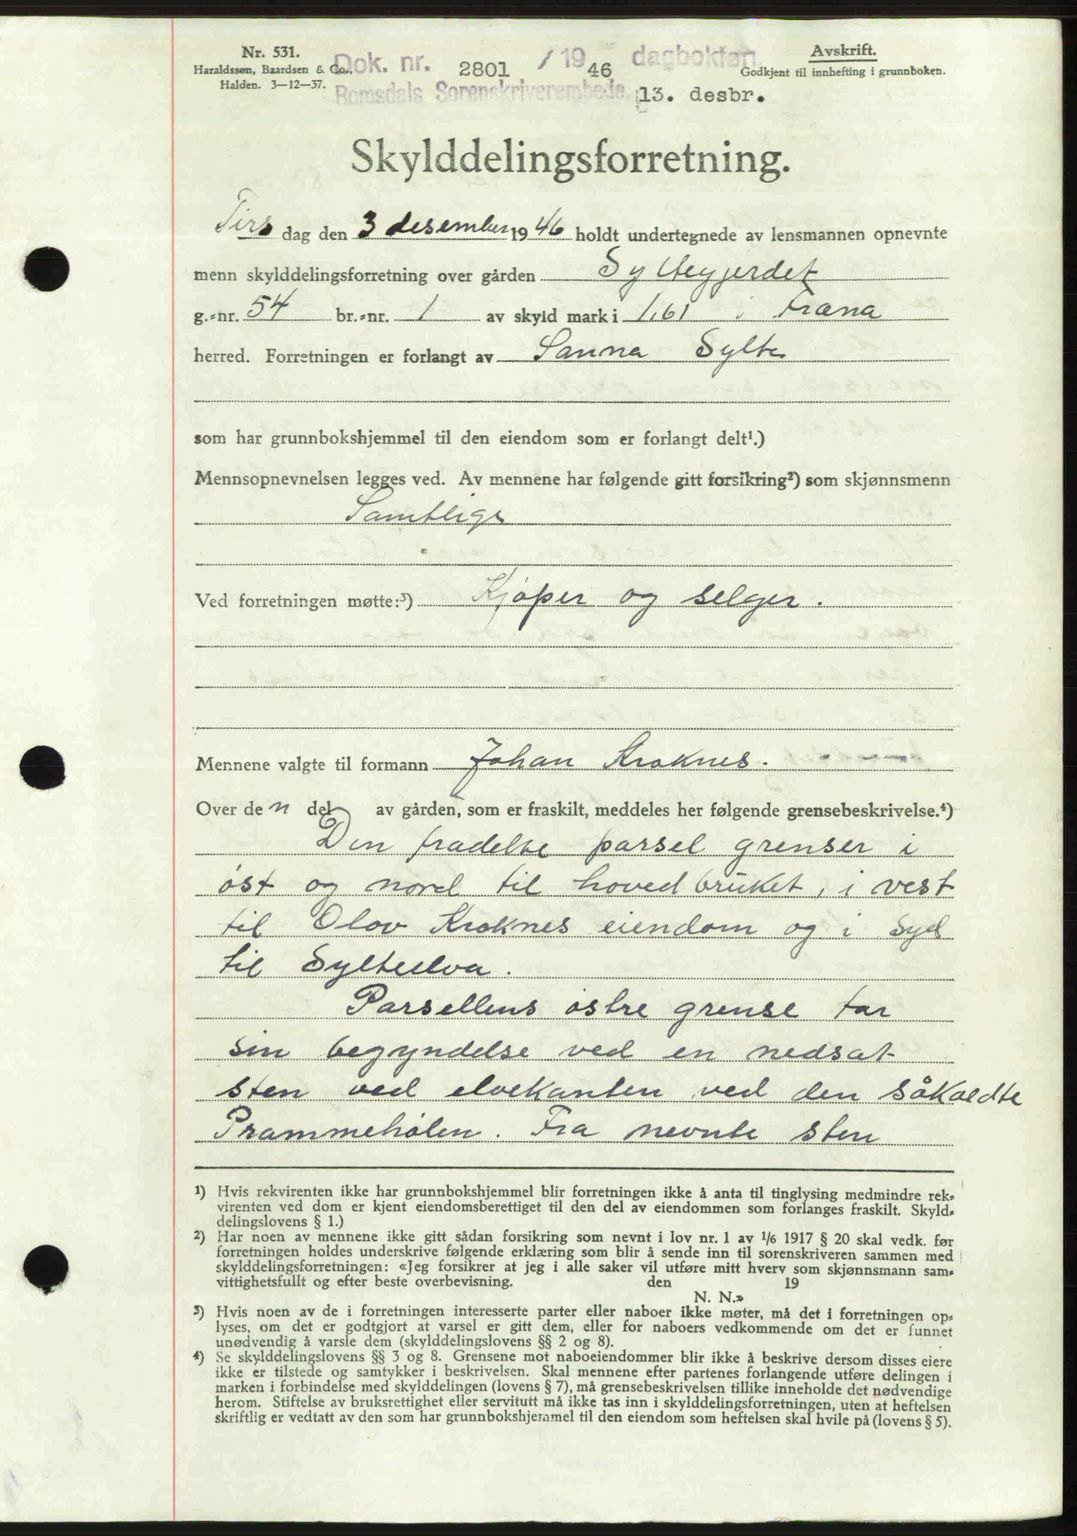 Nr. 531.
Haraldssen, Baardsen & Co.,
Halden. 3—12—37.
Dok. nr. 2801 / 1946 dagboken
Romsdals Sorenskriverembede. 13. desbr.
Avskrift.
Godkjent til innhefting i grunnboken.
Skylddelingsforretning.
Tirs dag den 3 desember 1946 holdt undertegnede av lensmannen opnevnte
menn skylddelingsforretning over gården Syltegjerdet
g.-nr. 54 br.-nr. 1 av skyld mark i 1,61 i Fræna
herred. Forretningen er forlangt av Sanna Sylte
som har grunnbokshjemmel til den eiendom som er forlangt delt¹.)
Mennsopnevnelsen legges ved. Av mennene har følgende gitt forsikring²) som skjønnsmenn
Samtlige
Ved forretningen møtte:³) Kjøper og selger.
Mennene valgte til formann Johan Kroknes.
Over de n del av gården, som er fraskilt, meddeles her følgende grensebeskrivelse.⁴)
Den fradelte parsel grenser i
øst og nord til hovedbruket, i vest
til Olav Kroknes eiendom og i syd
til Sylteelva.
Parsellens østre grense tar
sin begyndelse ved en nedsat
sten ved elvekanten ved den såkaldte
Prammehølen. Fra nevnte sten
¹) Hvis rekvirenten ikke har grunnbokshjemmel blir forretningen ikke å anta til tinglysing medmindre rek-
virenten ved dom er kjent eiendomsberettiget til den del av eiendommen som forlanges fraskilt. Skyld-
delingslovens § 1.)
²) Har noen av mennene ikke gitt sådan forsikring som nevnt i lov nr. 1 av 1/6 1917 § 20 skal vedk. før
forretningen holdes underskrive følgende erklæring som blir å sende inn til sorenskriveren sammen med
skylddelingsforretningen: «Jeg forsikrer at jeg i alle saker vil utføre mitt hverv som skjønnsmann sam-
vittighetsfullt og efter beste overbevisning. den 19
N. N.»
³) Hvis noen av de i forretningen interesserte parter eller naboer ikke møter, må det i forretningen op-
lyses, om det er godtgjort at varsel er gitt dem, eller for naboers vedkommende om det er funnet
unødvendig å varsle dem (skylddelingslovens §§ 2 og 8).
⁴) Se skylddelingslovens §§ 3 og 8. Grensene mot naboeiendommer blir ikke å beskrive dersom disses eiere
ikke er tilstede og samtykker i beskrivelsen. Skal mennene efter partenes forlangende utføre delingen i
marken i forbindelse med skylddelingen (lovens § 7), må grensebeskrivelsen tillike inneholde det nødvendige
herom. Stiftelse av bruksrettighet eller servitutt må ikke tas inn i skylddelingsforretningen, uten at heftelsen
skriftlig er vedtatt av den som har grunnbokshjemmel til den eiendom som heftelsen skal hvile på (lovens § 5).